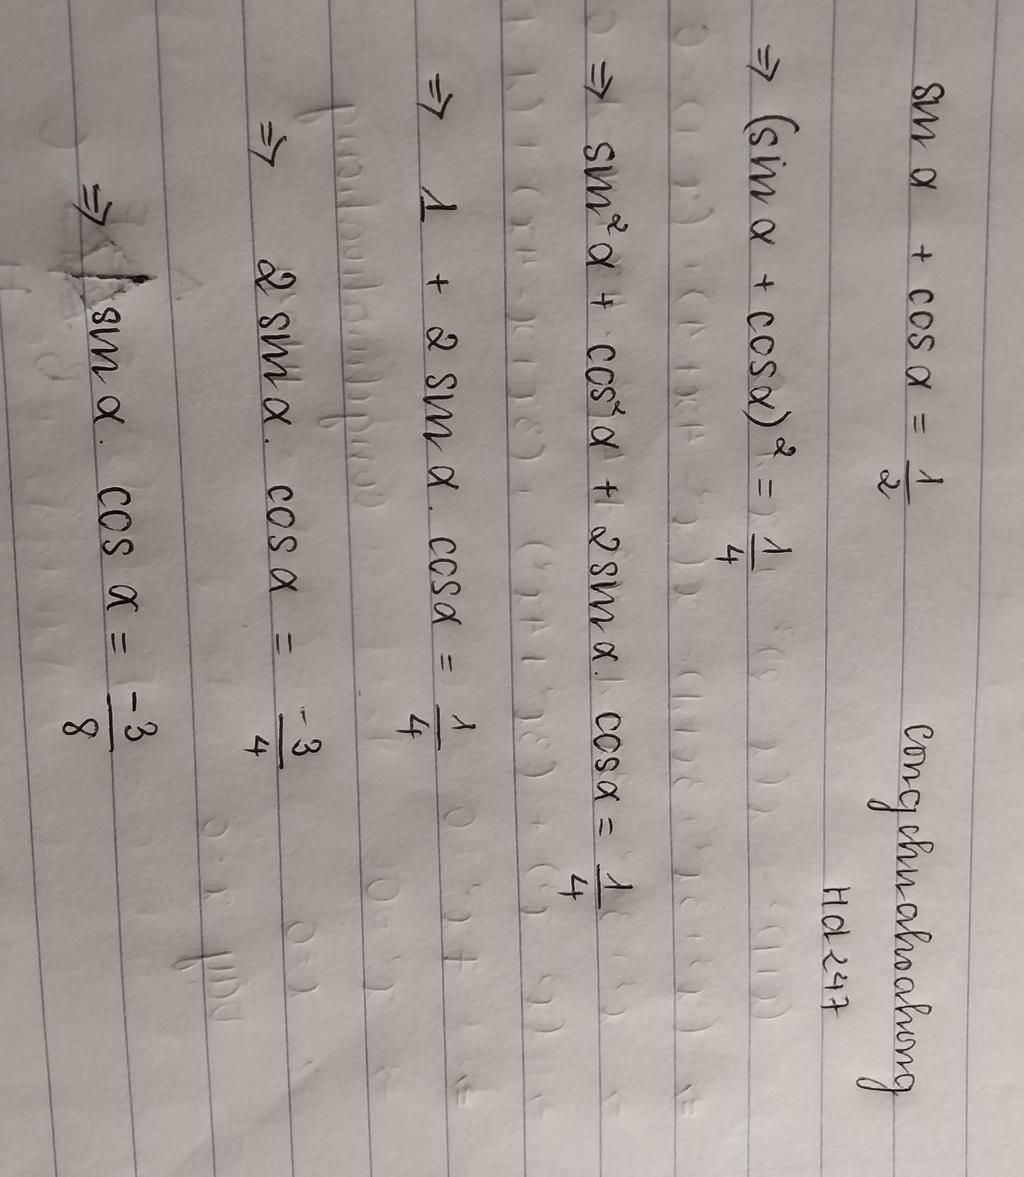 sin α + cos α = 1/2
congchuahoahong
Hd 247
⇒ (sin α + cos α)² = 1/4
⇒ sin² α + cos² α + 2 sin α . cos α = 1/4
⇒ 1 + 2 sin α . cos α = 1/4
⇒ 2 sin α . cos α = -3/4
⇒ sin α . cos α = -3/8